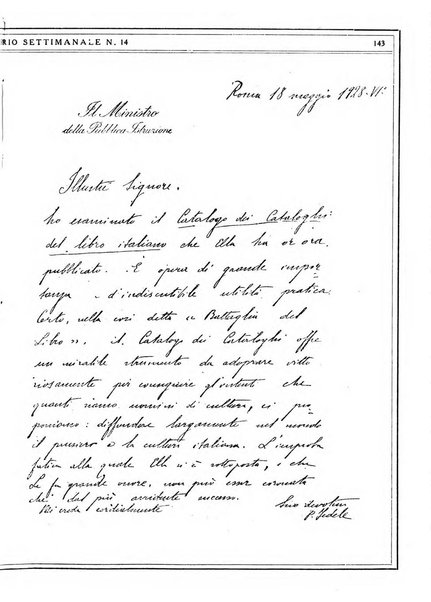 RIO SETTIMANALE N. 14
143
Roma 18 maggio 1928-VI°
Il Ministro
della Pubblica Istruzione
Illustre Signore,
ho esaminato il Catalogo dei Cataloghi
del libro italiano che Ella ha or ora
pubblicato. È opera di grande impor
tanza e d'indiscutibile utilità pratica.
Certo, nella così detta « Battaglia del
Libro », il Catalogo dei Cataloghi offre
un mirabile strumento da adoprare vitto
riosamente per conquidere gli intenti che
quanti siamo uomini di cultura, ci pro
poniamo: diffondere largamente nel mondo
il pensiero e la cultura italiana. L'improba
fatica alla quale Ella si è sottoposta, e che
Le fa grande onore, non può esser coronata
che dal più arridente successo.
Mi creda cordialmente
Suo devotissimo
P. Fedele